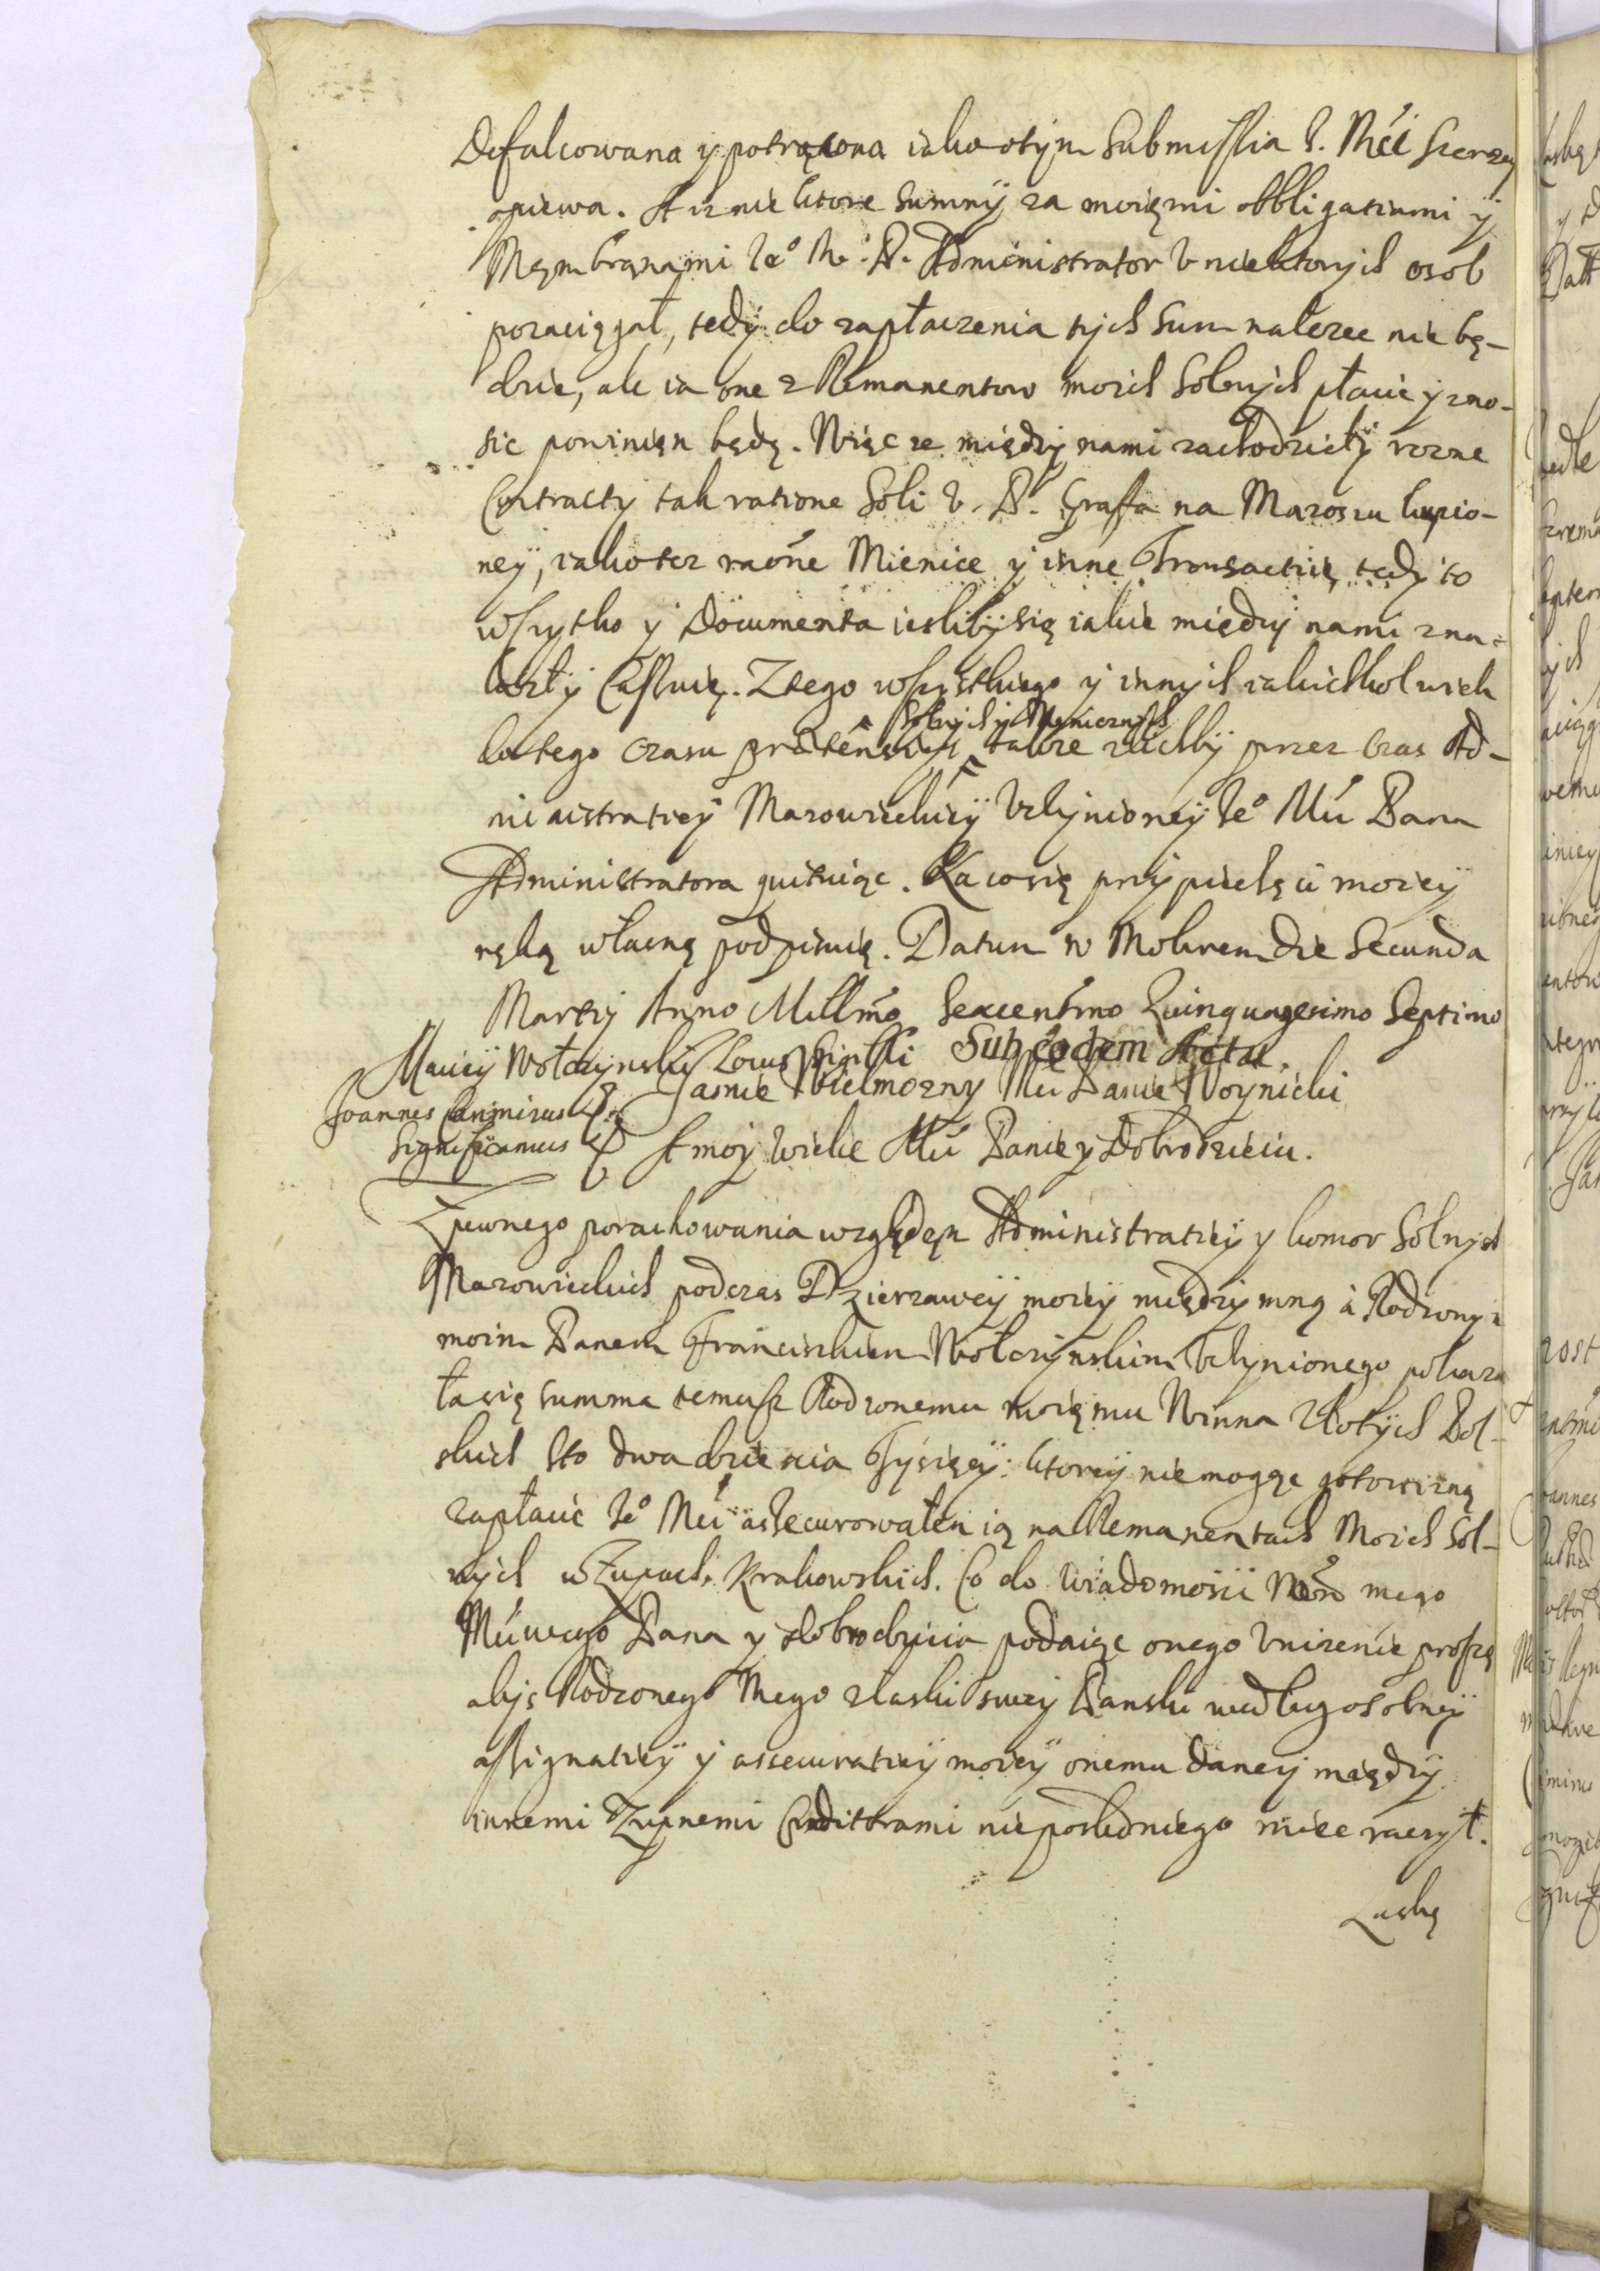 Defalcowana y potrącona iako otym Submissia I. Mći szerzey
opiewa. A iz nie ktore Summy za moięmi obbligatiami y
Męmbranami Ie° Mć. P. Administrator V niektorych osob
pozaciągał, tedy do zapłaczenia tych Sum nalezec nie bę-
dzie, ale ia one z Remanentow moich Solnych płacic y zno-
sic powinięn będę. Więc ze między nami zachodzieły rozne
Contracty tak ratione Soli V. P. Graffa na Mazoszu kupio-
ney, iako tez raõne Mienice y inne Transactię, tedy to
wszytko y Documenta iesliby się iakie między nami zna-
lazły Cassuię. Z tego wszystkiego y innych iakichkolwiek
do tego czasu prætensiey
Solnych y Męnicznych
takze liczby przez czas Ad-
ministratiey Mazowieckiey Vczynioney Ie° Mći Pana
Administratora quituiąc. Na co się przy pieczęci moiey
ręką własną podpisuię. Datum w Mokrem die Secunda
Martij Anno Millmo Sexcentmo Quinquagesimo Septimo
Maciey Wołczynski Locus Sigilli Sub eodem Actu.
Joannes Casimirus &
Significamus &
Jasnie Wielmozny Mći Panie Woynicki
A moy wielce Mći Panie y Dobrodzieiu.
Z pewnego porachowania względęm Administratiey y komor Solnych
Mazowieckich podczas Dzierzawey moiey między mną á Rodzonym
moim Panem Franciszkiem Wołczynskim Vczynionego pokaza
ła się summa temusz Rodzonemu moięmu Winna Złotych Pol-
skich sto dwadziescia Tysięcy: ktorey nie mogąc gotowizną
zapłacic Ie° Mći assecurowałem ią na Remanentach Moich Sol-
nych w Zupach Krakowskich. Co do wiadomosci Wm̃ mego
Mćiwego Pana y dobrodzieia podaiąc onego Vnizenie proszę
abys Rodzonego Mego z łaski swey Panski według osobney
assignatiey y assecuratiey moiey onemu daney między
innemi Zupnemi Creditorami nieposledniego miec raczył.
Łaskę